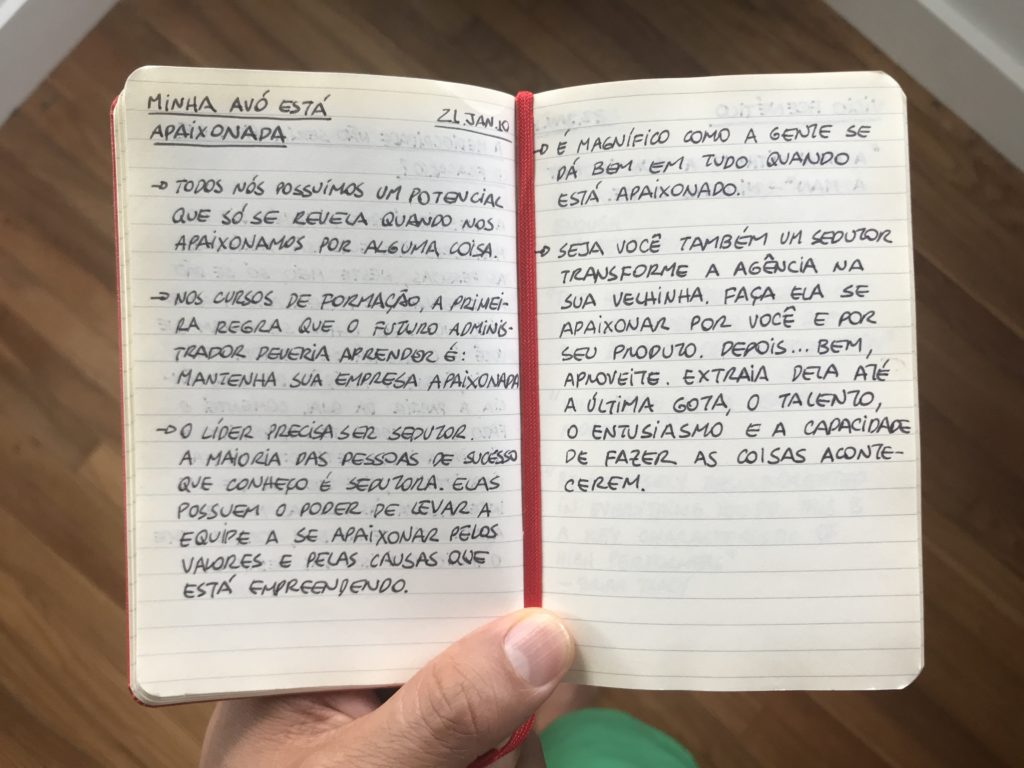 MINHA AVÓ ESTÁ
APAIXONADA
21.JAN.10
→ TODOS NÓS POSSUÍMOS UM POTENCIAL
QUE SÓ SE REVELA QUANDO NOS
APAIXONAMOS POR ALGUMA COISA.
→ NOS CURSOS DE FORMAÇÃO, A PRIMEI-
RA REGRA QUE O FUTURO ADMINIS-
TRADOR DEVERIA APRENDER É:
MANTENHA SUA EMPRESA APAIXONADA
→ O LÍDER PRECISA SER SEDUTOR.
A MAIORIA DAS PESSOAS DE SUCESSO
QUE CONHEÇO É SEDUTORA. ELAS
POSSUEM O PODER DE LEVAR A
EQUIPE A SE APAIXONAR PELOS
VALORES E PELAS CAUSAS QUE
ESTÁ EMPREENDENDO.
→ É MAGNÍFICO COMO A GENTE SE
DÁ BEM EM TUDO QUANDO
ESTÁ APAIXONADO.
→ SEJA VOCÊ TAMBÉM UM SEDUTOR
TRANSFORME A AGÊNCIA NA
SUA VELHINHA. FAÇA ELA SE
APAIXONAR POR VOCÊ E POR
SEU PRODUTO. DEPOIS... BEM,
APROVEITE. EXTRAIA DELA ATÉ
A ÚLTIMA GOTA, O TALENTO,
O ENTUSIASMO E A CAPACIDADE
DE FAZER AS COISAS ACONTE-
CEREM.